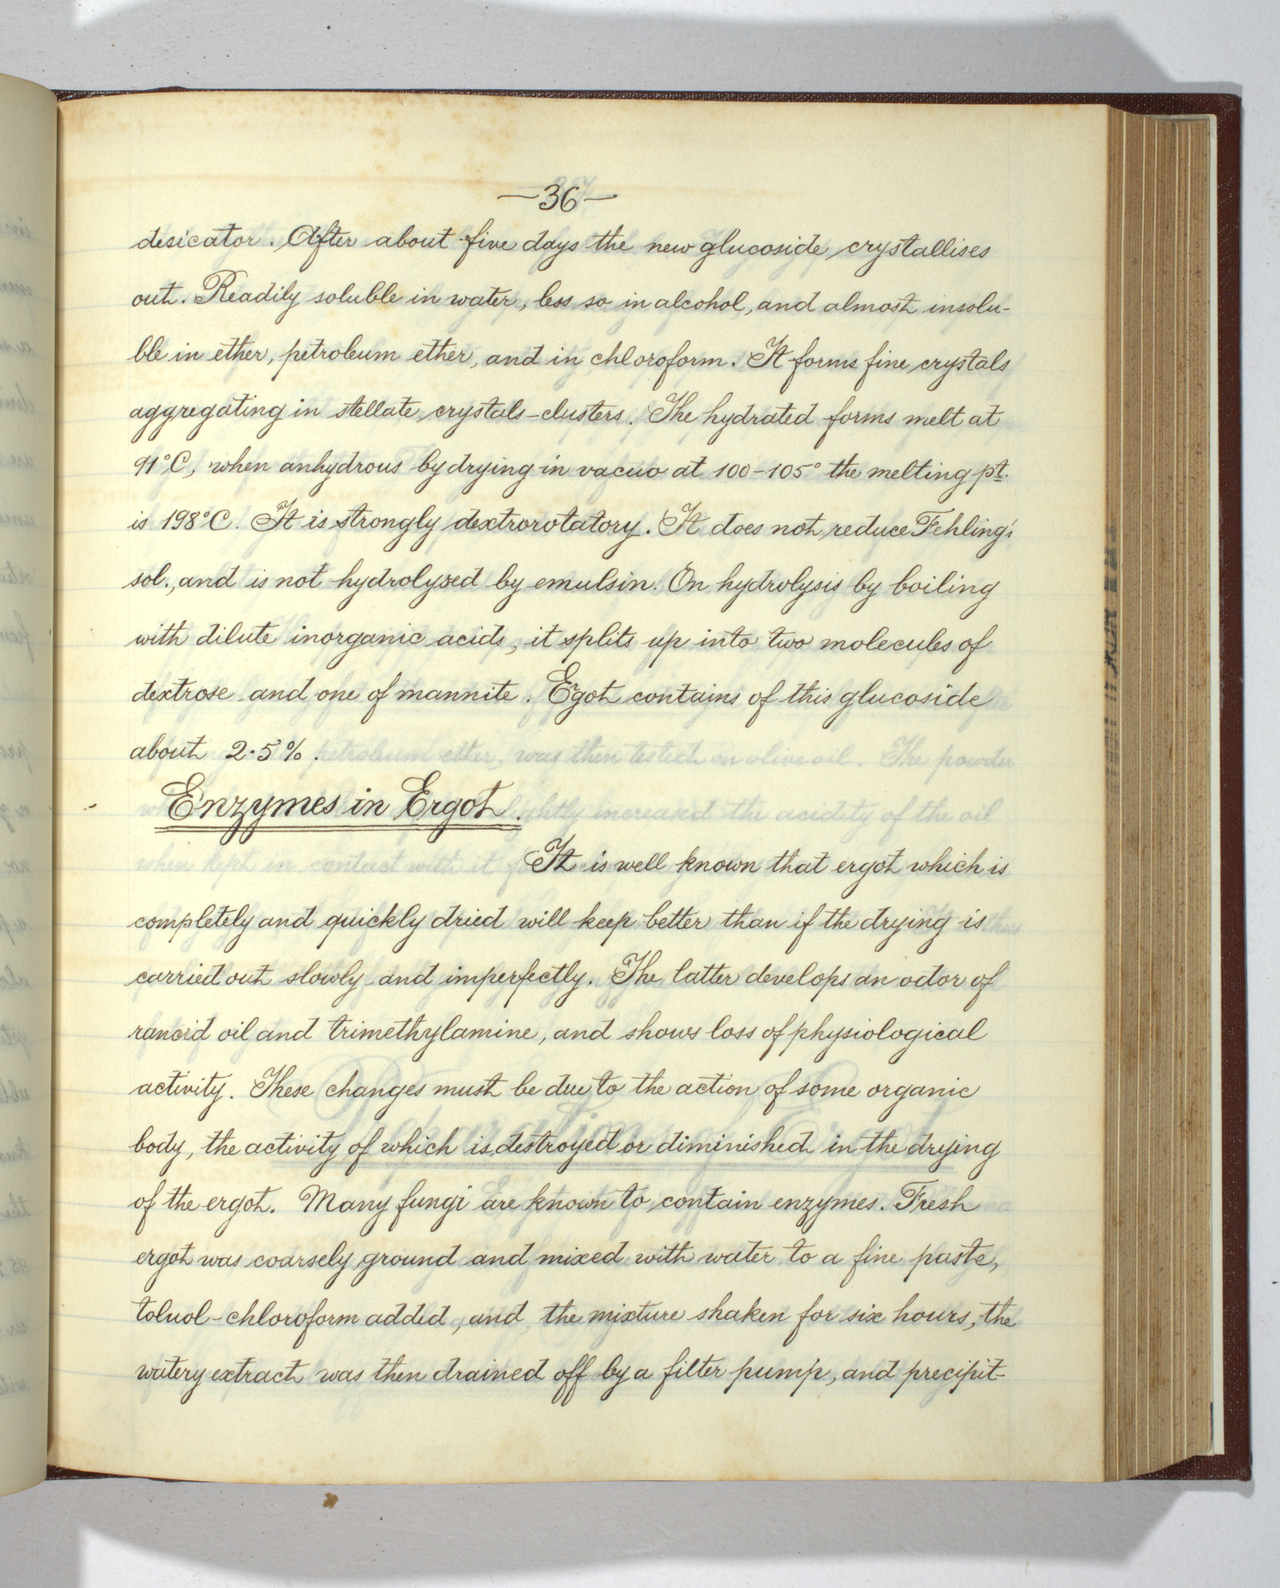 —36—
desicator. After about five days the new glucoside crystallises
out. Readily soluble in water, less so in alcohol, and almost insolu-
ble in ether, petroleum ether, and in chloroform. It forms fine crystals
aggregating in stellate crystals-clusters. The hydrated forms melt at
91°C, when anhydrous by drying in vacuo at 100-105° the melting pt.
is 198°C. It is strongly dextrorotatory. It does not reduce Fehling's
sol., and is not hydrolyzed by emulsin. On hydrolysis by boiling
with dilute inorganic acids, it splits up into two molecules of
dextrose and one of mannite. Ergot contains of this glucoside
about 2.5%.
Enzymes in Ergot.
It is well known that ergot which is
completely and quickly dried will keep better than if the drying is
carried out slowly and imperfectly. The latter develops an odor of
rancid oil and trimethylamine, and shows loss of physiological
activity. These changes must be due to the action of some organic
body, the activity of which is destroyed or diminished in the drying
of the ergot. Many fungi are known to contain enzymes. Fresh
ergot was coarsely ground and mixed with water to a fine paste,
toluol-chloroform added, and the mixture shaken for six hours, the
watery extract was then drained off by a filter pump, and precipit-